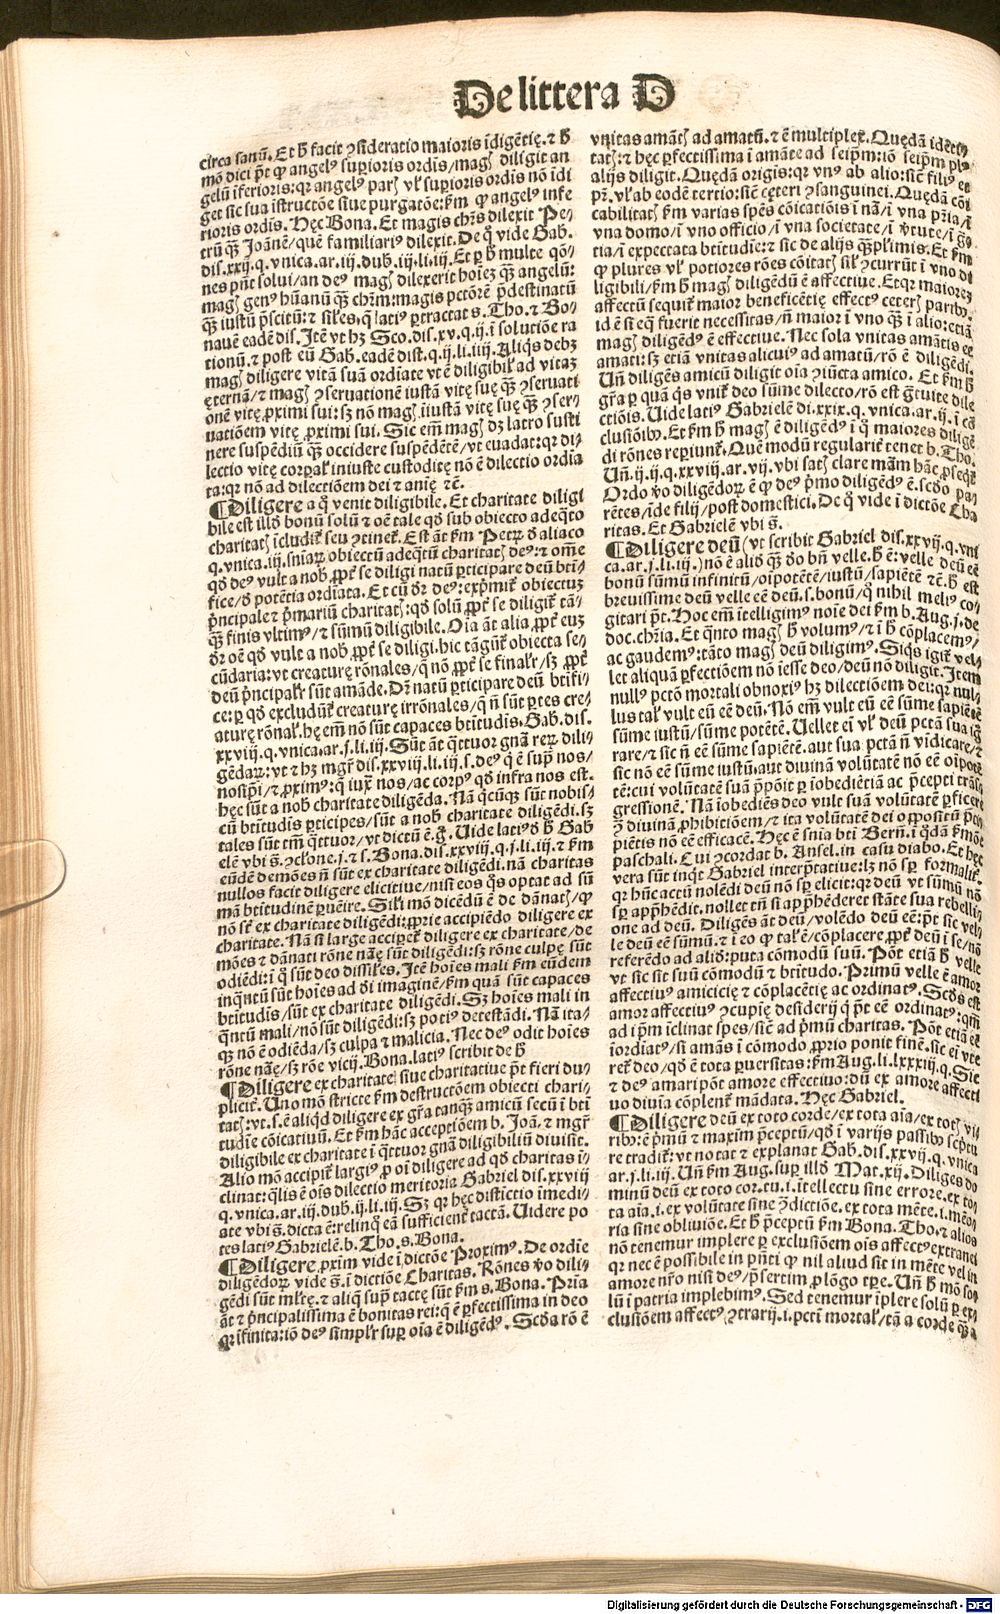 De littera D
circa sanū. Et h̄ facit ↄsideratio maioris īdigētię. ⁊ h̄
mō dici p̄t ꝙ angelꝰ supioris ordīs/magꝭ diligit an
gelū īferioris: qꝛ angelꝰ parꝭ vl supioris ordīs nō idi
get sic sua īstructōe siue purgatōe: fm ꝙ angelꝰ infe
rioris ordīs. Hęc Bona. Et magis chrs dilexit Pe-
trū qꝫ Joānē/quē familiariꝰ dilexit. De q̊ vide Gab.
dis. xxij. q. vnica. ar. iij. dub. iij. li. iij. Et ꝑ h̄ multe qō-
nes pn̄t solui/an deꝰ magꝭ dilexerit hoīeꝫ qꝫ angelū:
magꝭ genꝰ hūanū qꝫ chrm: magis pctōrē p̄destinatū
qꝫ iustū p̄scitū: ⁊ siles. q̄ latiꝰ ꝑtractat s. Tho. ⁊ Bo-
nauē eadē dis. Itē vt hꝫ Sco. dis. xv. q. ij. ī solutiōe ra
tionū. ⁊ post eū Gab. eadē dist. q. ij. li. iiij. Aliq̄s debꝫ
magꝭ diligere vitā suā ordīate vt ē diligibil̄ ad vitaꝫ
ęternā/⁊ magꝭ ↄseruationē iustā vitę suę qꝫ ↄseruati
onē vitę ꝓximi sui: sꝫ nō magꝭ īiustā vitę suę qꝫ ↄser-
uatiōem vitę ꝓximi sui. Sic em̄ magꝭ dꝫ latro susti
nere suspēdiū qꝫ occidere suspēdētē/vt euadat: qꝛ di-
lectio vitę corpal̄ iniuste custoditę nō ē dilectio ordīa
ta: qꝛ nō ad dilectiōem dei ⁊ anię ⁊ē.
¶Diligere a q̊ venit diligibile. Et charitate diligi
bile est illd bonū solū ⁊ oē tale qd sub obiecto adeq̄to
charitatꝭ īcludit̄ seu ↄtinet̄. Est āt fm Petꝝ d̄ aliaco
q. vnica. iij. sniaꝝ obiectū adeq̄tū charitatꝭ deꝰ: ⁊ om̄e
qd deꝰ vult a nob̄ ꝓpt̄ se diligi natū ꝑticipare deū btī-
fice/d̄ potētia ordīata. Et cū dr̄ deꝰ: exp̄mit̄ obiectuꝫ
p̄ncipale ⁊ p̄mariū charitatꝭ: qd solū ꝓpt̄ se diligit̄ tā-
qꝫ finis vltimꝰ/⁊ sūmū diligibile. Oīa āt alia ꝓpt̄ euꝫ
dr̄ oē qd vult a nob̄ ꝓpt̄ se diligi. hic tāgūt̄ obiecta se-
cūdaria: vt creaturę rōnales/q̄ nō ꝓpt̄ se finalr̄/sꝫ ꝓpt̄
deū p̄ncipalr̄ sūt amāde. Dr̄ natū ꝑticipare deū btīfi-
ce: ꝑ qd excludūt̄ creaturę irrōnales/q̄ n̄ sūt ꝑtes cre-
aturę rōnal̄. hę em̄ nō sūt capaces btītudīs. Gab. dis.
xxviij. q. vnica. ar. j. li. iij. Sūt āt q̄ttuor gnā reꝝ dili-
gēdaꝝ: vt ⁊ hꝫ mgr̄ dis. xxviij. li. iij. s. deꝰ q̄ ē supͣ nos/
nosip̄i/⁊ ꝓximꝰ: q̄ iuxͣ nos/ac corpꝰ qd infra nos est.
hęc sūt a nob̄ charitate diligēda. Nā q̄cūqꝫ sūt nobis-
cū btītudīs ꝑticipes/sūt a nob̄ charitate diligēdi. sꝫ
tales sūt tm̄ q̄ttuor/vt dictū ē. g̊. Uide latiꝰ d̄ h̄ Gab
elē vbi s̄. ↄclone. j. ⁊ s. Bona. dis. xxviij. q. j. li. iij. ⁊ fm
eūdē demōes n̄ sūt ex charitate diligēdi. nā charitas
nullos facit diligere elicitiue/nisi eos q̄s optat ad sū
mā btītudinē ꝑuēire. Sil̄i mō dicēdū ē de dānatꝭ/ꝙ
nō st̄ ex charitate diligēdi: ꝓprie accipiēdo diligere ex
charitate. Nā si large accipet̄ diligere ex charitate/de
mōes ⁊ dānati rōne nāę sūt diligēdi: sꝫ rōne culpę sūt
odiēdi: ī q̊ sūt deo dissiles. Itē hoīes mali fm eūdem
inq̄ntū sūt hoīes ad d̄i imaginē/fm quā sūt capaces
btītudīs/sūt ex charitate diligēdi. Sꝫ hoīes mali in
q̄ntū mali/nō sūt diligēdi: sꝫ potiꝰ detestādi. Nā ita-
qꝫ nō ē odiēda/sꝫ culpa ⁊ malicia. Nec deꝰ odit hoīes
rōne nāę/sꝫ rōe vicij. Bona. latiꝰ scribit de h̄
¶Diligere ex charitate/siue charitatiue p̄t fieri du-
plicit̄. Uno mō stricte fm destructōem obiecti chari-
tatꝭ: vt. s. ē aliq̄d diligere ex grā tanqꝫ amicū secū ī btī
tudīe cōicatiuū. Et fm hāc acceptiōem b. Joā. ⁊ mgr̄
diligibile ex charitate ī q̄ttuor gnā diligibiliū diuisit.
Alio mō accipit̄ largiꝰ ꝓ oī diligere ad qd charitas ī-
clinat: q̄lis ē oīs dilectio meritoria Gabriel dis. xxviij
q. vnica. ar. iij. dub. ij. li. iij. Sꝫ qꝛ hęc distīctio īmedi-
ate vbi s̄. dicta ē: relinq̄ eā sufficient̄ tactā. Uidere po
tes latiꝰ Gabrielē. b. Tho. s. Bona.
¶Diligere ꝓxim̄ vide ī dictōe Proximꝰ. De ordīe
diligēdoꝝ vide s̄. ī dictiōe Charitas. Rōnes v̊o dili-
gēdi sūt ml̄tę. ⁊ aliq̄ supͣ tactę sūt fm s. Bona. Prīa
āt ⁊ p̄ncipalissima ē bonitas rei: q̄ ē ꝑfectissima in deo
qꝛ īfinita: iō deꝰ simplr̄ suꝑ oīa ē diligēdꝰ. Scda rō ē
vnitas amātꝭ ad amatū. ⁊ ē multiplex. Quędā idēti
tatꝭ: ⁊ hęc ꝑfectissima ī amāte ad seip̄m: iō seip̄m plꝰ
alijs diligit. Quędā origis: qꝛ vnꝰ ab alio: sic filiꝰ et
pr̄. vl ab eodē tertio: sic cęteri ↄsanguinei. Quędā cōi
cabilitatꝭ fm varias spēs cōicatiōis ī nā/ī vna pr̄ia/ī
vna domo/ī vno officio/ī vna societate/ī v̊tute/ī grā
tia/ī expectata btītudīe: ⁊ sic de alijs qꝫplīmis. Et fm
ꝙ plures vl potiores rōes cōitatꝭ sil̄ ↄcurrūt ī vno di
ligibili/fm h̄ magꝭ diligēdū ē affectiue. Et qꝛ maiorē
affectū sequit̄ maior beneficētię effectꝰ ceterꝭ paribꝰ.
id ē si eq̄ fuerit necessitas/n̄ maior ī vno qꝫ ī alio: etiā
magꝭ diligēdꝰ ē effectiue. Nec sola vnitas amātis ē
amati: sꝫ etiā vnitas alicuiꝰ ad amatū/rō ē diligēdi.
Un̄ diligēs amicū diligit oīa ↄiūcta amico. Et fm h̄
grā ꝑ quā q̄s vnit̄ deo sūme dilecto/rō est gͣtuite dile
ctiōis. Uide latiꝰ Gabrielē di. xxix. q. vnica. ar. ij. ī cō
clusiōibꝰ. Et fm h̄ magꝭ ē diligēdꝰ ī q̊ maiores diligē
di rōnes reꝑiunt̄. Quē modū regularit̄ tenet b. Tho.
Un̄. ij. ij. q. xxviij. ar. vij. vbi satꝭ clare mām hāc ꝓseqt̄
Ordo v̊o diligēdoꝝ ē ꝙ deꝰ p̄mo diligēdꝰ ē. scdo pa
rētes/īde filij/post domestici. De q̊ vide ī dictōe Cha
ritas. Et Gabrielē vbi s̄.
¶Diligere deū (vt scribit Gabriel dis. xxvij. q. vni
ca. ar. j. li. iij.) nō ē alid qꝫ d̄o bn̄ velle. h̄ ē: velle deū eē
bonū sūmū infinitū/oīpotētē/iustū/sapiētē ⁊ē. h̄ est
breuissime deū velle eē deū. s. bonū/q̊ nihil meliꝰ co-
gitari p̄t. Hoc em̄ ītelligimꝰ noīe dei fm b. Aug. j. de
doc. chr̄ia. Et q̄nto magꝭ h̄ volumꝰ/⁊ ī h̄ cōplacemꝰ/
ac gaudemꝰ: tāto magꝭ deū diligimꝰ. Siqs igit̄ vel-
let aliquā ꝑfectiōem nō īesse deo/deū nō diligit. Item
nullꝰ pctō mortali obnoxiꝰ hꝫ dilectiōem dei: qꝛ nul-
lus tal̄ vult eū eē deū. Nō em̄ vult eū eē sūme sapiētē
sūme iustū/sūme potētē. Uellet ei vl deū pctā sua igͣ
rare/⁊ sic n̄ eē sūme sapiētē. aut sua pctā n̄ vīdicare/⁊
sic nō eē sūme iustū. aut diuinā volūtatē nō eē oīpotē
tē: cui volūtatē suā p̄pōit ꝑ īobediētiā ac p̄cepti trās
gressionē. Nā īobediēs deo vult suā volūtatē ꝑficere
ↄͣ diuinā ꝓhibitiōem/⁊ ita volūtatē dei oppositū p̄ci
piētis nō eē efficacē. Hęc ē snia bti Bern̄. ī q̊dā fmōe
paschali. Cui ↄcordat b. Ansel. in casu diabo. Et hęc
vera sūt inqt Gabriel interp̄tatiue: lꝫ nō sꝑ formalit̄.
qꝛ hūc actū nolēdi deū nō sꝑ elicit: qꝛ deū vt sūmū nō
sꝑ app̄hēdit. nollet tn̄ si app̄hēderet stāte sua rebelli-
one ad deū. Diligēs āt deū/volēdo deū eē: p̄t sic vel-
le deū eē sūmū. ⁊ ī eo ꝙ tal̄ ē/cōplacere ꝓpt̄ deū ī se/nō
referēdo ad alid: puta cōmodū suū. Pōt etiā h̄ velle
vt sic sit suū cōmodū ⁊ btītudo. Primū velle ē amor
affectiuꝰ amicicię ⁊ cōplacētię ac ordinatꝰ. Scds est
amor affectiuꝰ ↄcupię desiderij q̄ p̄t eē ordinatꝰ: qm̄
ad ip̄m īclinat spes/sicē ad p̄mū charitas. Pōt etiā eē
īordīatꝰ/si amās ī cōmodo ꝓprio ponit finē. sic ei vte
ret̄ deo/qd ē tota ꝑuersitas: fm Aug. li. lxxxiij. q. Sic
⁊ deꝰ amari pōt amore effectiuo: dū ex amore affecti
uo diuīa cōplent̄ mādata. Hęc Gabriel.
¶Diligere deū ex toto corde/ex tota aīa/ex totꝭ vi
ribꝰ: ē p̄mū ⁊ maxim̄ p̄ceptū/qd ī varijs passibꝰ sc̄ptu
re tradit̄: vt notat ⁊ explanat Gab. dis. xxvij. q. vnica
ar. j. li. iij. Un̄ fm Aug. suꝑ illd Mat. xij. Diliges do
minū deū ex toto cor. tu. i. ītellectu sine errore. ex to
ta aīa. i. ex volūtate sine ↄͣdictiōe. ex tota mēte. i. mēo
ria sine obliuiōe. Et h̄ p̄ceptū fm Bona. Tho. ⁊ alios
nō tenemur implere ꝑ exclusiōem oīs affectꝰ extranei
qꝛ nec ē possibile in pn̄ti ꝙ nil aliud sit in mēte vel in
amore nr̄o nisi deꝰ/p̄sertim ꝓ lōgo tꝑe. Un̄ h̄ mō so
lū ī patria implebimꝰ. Sed tenemur īplere solū ꝑ ex
clusiōem affectꝰ ↄtrarij. i. pcti mortal̄/tā a corde qꝫ a
Digitalisierung gefördert durch die Deutsche Forschungsgemeinschaft - DFG